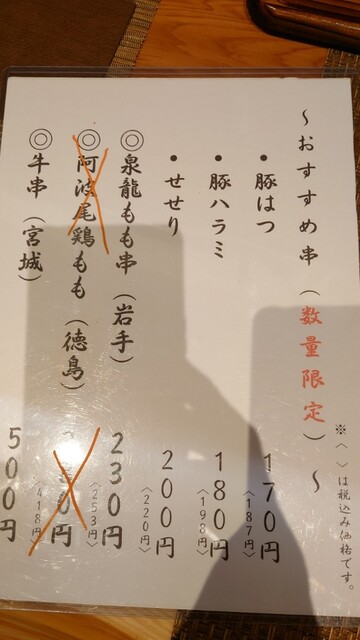 ～おすすめ串（数量限定）～
※〈 〉は税込み価格です。
・豚はつ 170円
〈187円〉
・豚ハラミ 180円
〈198円〉
・せせり 200円
〈220円〉
◎泉龍もも串（岩手） 230円
〈253円〉
◎阿波尾鶏もも（徳島） 80円
〈418円〉
◎牛串（宮城） 500円